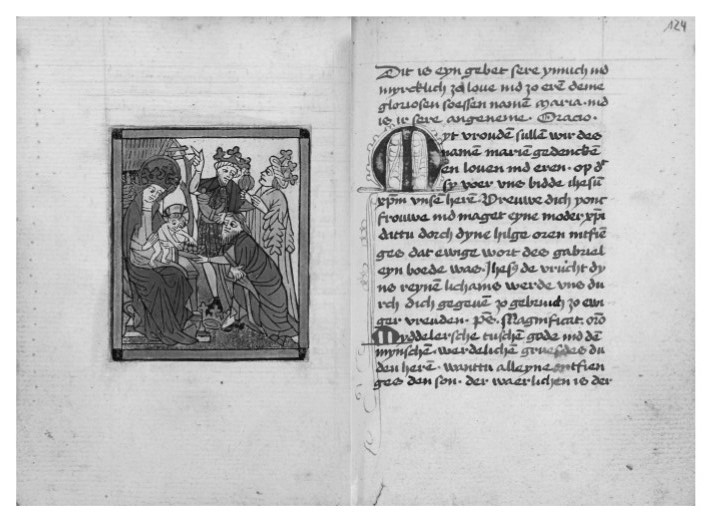 124
Dit is eyn gebet sere ynnich nd
myrcklich zo loue nd zo erē deme
gloriosen soessen namē maria · nd
is ir sere angeneme · Oracio ·
Myt vroudē sullē wir des
namē mariē gedenckē
en louen nd eren · op dͤ
sy voer vns bidde ihesū
xpm̄ vnsē herē · Vreuwe dich ionc
frouwe nd maget eyne moder xp̄i
dattu dorch dyne hilge oren ntfiē
ges dat ewige wort des gabriel
eyn boede was · Ihesꝰ de vrucht dy
ns reynē lichams werde vns du
rch dich gegeuē zo gebruch zo ewi
ger vreuden · p̄s · Magnificat · oro̅
Middelersche tuschē gode nd dē
mynschē · werdelichē gruesdes du
den herē · wanttu alleyne ntfien
ges den son · der waerlichen is der